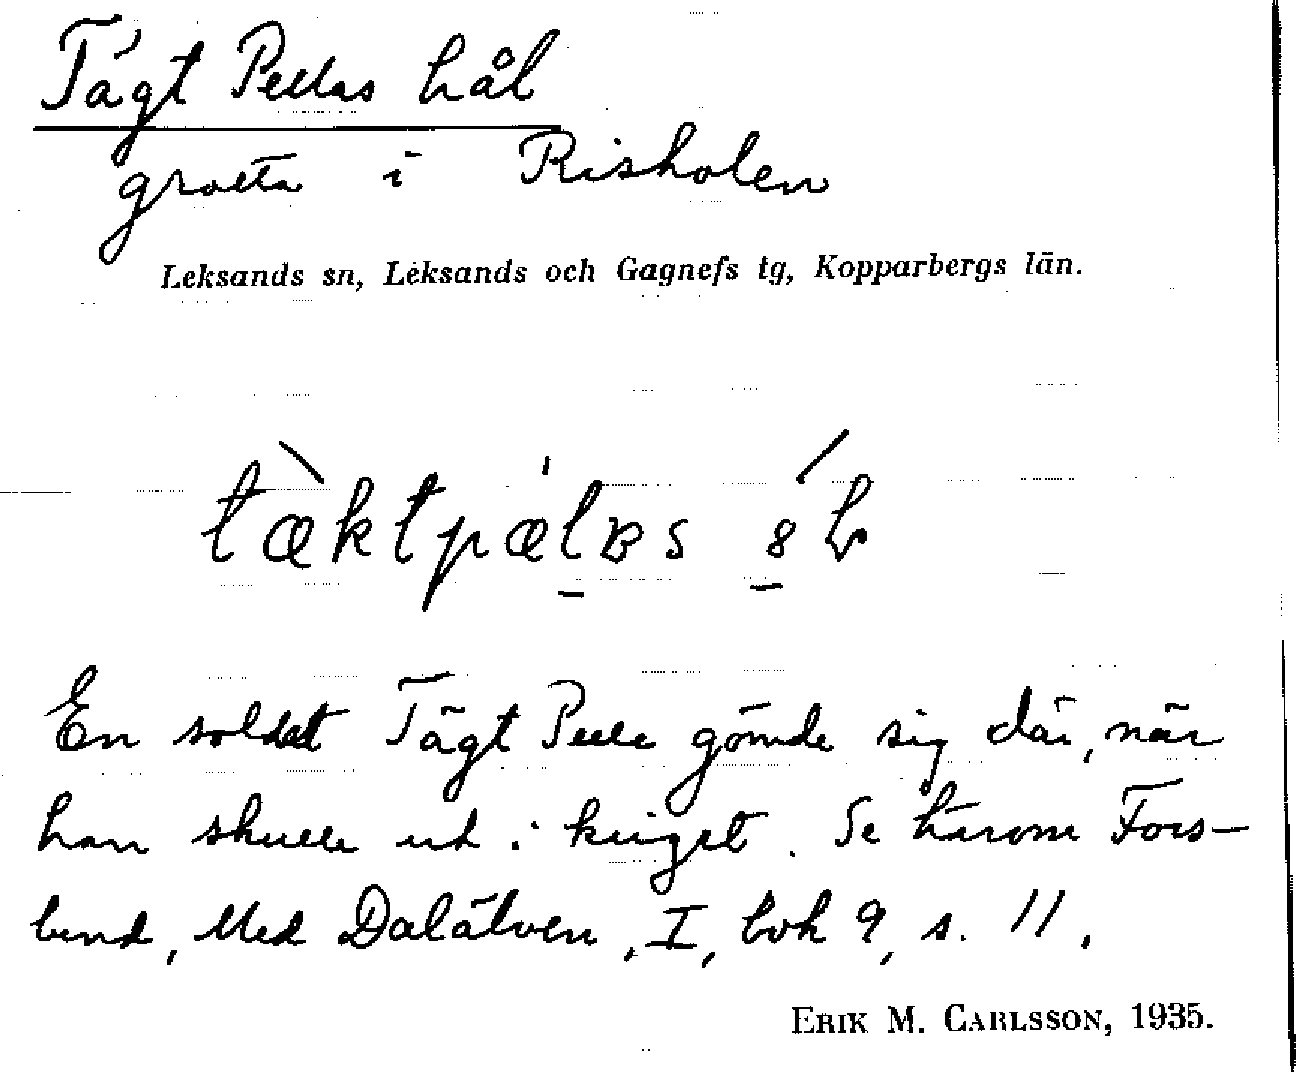 Tägt Pellas hål
grotta i Risholen
Leksands sn, Leksands och Gagnefs tg, Kopparbergs län.
tæktpælɐs
En soldat Tägt Pelle gömde sig där, när
han skulle ut i kriget. Se härom Fors-
lund, Med Dalälven, I, bok 9, s. 11.
ERIK M. CARLSSON, 1935.